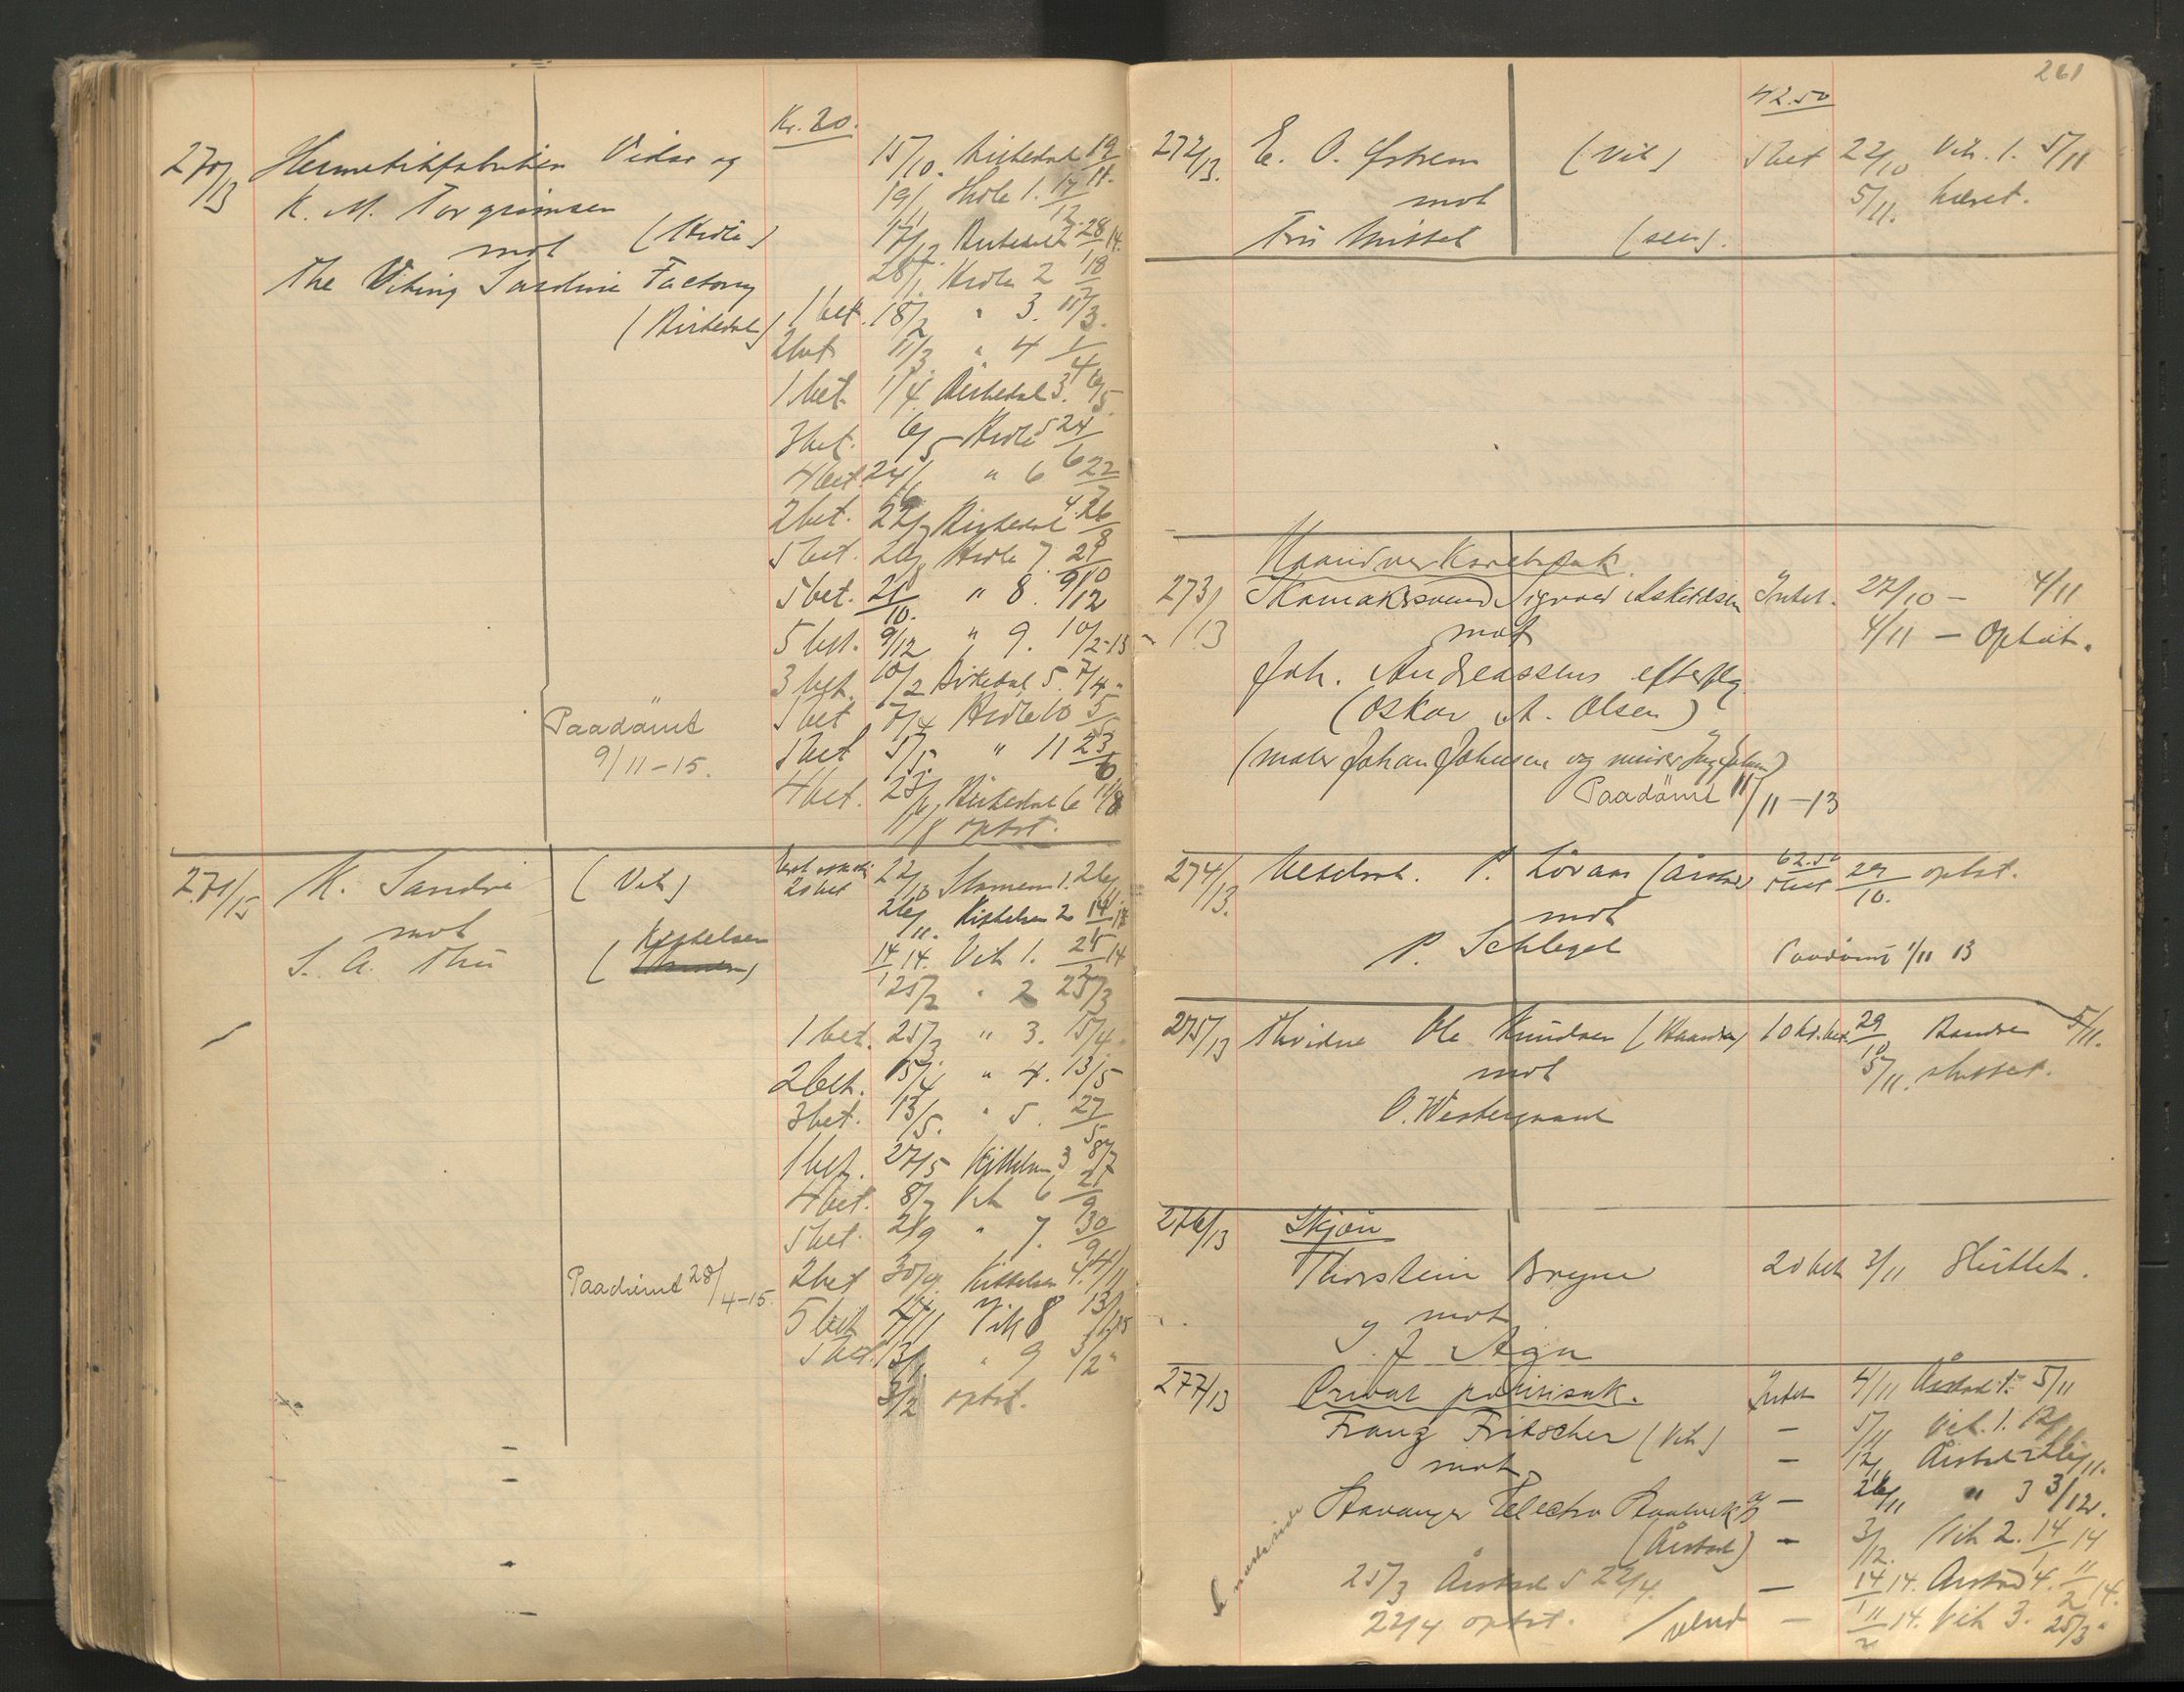 Kr. 20.
270/13 Hermetikfabriken Vidar og
K. M. Torgrimsen
mot (Hidle)
The Viking Sardine Factory
(Birkedal)
15/10. Birkedal 19/11.
19/11 Hidle 1. 17/12.
17/12. Birkedal 2 28/1 14.
28/1. Hidle 2 18/2
1 bet. 18/2 " 3. 11/3.
2 bet 11/3 " 4 1/4
1 bet. 1/4 Birkedal 3. 6/5.
3 bet. 6/5 Hidle 5 24/6
4 bet. 24/6 " 6 22/7
2 bet. 22/7 Birkedal 4. 26/8
5 bet. 26/8 Hidle 7. 21/10
5 bet. 21/10. " 8. 9/12
5 bet. 9/12 " 9. 10/2-15
3 bet. 10/2 Birkedal 5. 7/4 "
5 bet 7/4 Hidle 10 5/5
5 bet 5/5. " 11 23/6
4 bet. 23/6 Birkedal 6 11/8
11/8 optat.
Paadömt
9/11-15.
271/13 K. Sandvi (Vik)
mot
S. A. Thu (Kittelsen)
20 bet 22/10 1. 26/11.
26/11. Kittelsen 2 14/1 14
14/1 14. Vik 1. 25/2 14
25/2 " 2 25/3
1 bet. 25/3 " 3. 15/4.
2 bet. 15/4 " 4. 13/5
3 bet. 13/5. " 5. 27/5
1 bet. 27/5 Kittelsen 3 8/7
4 bet. 8/7 Vik 6 2/9
5 bet. 2/9 " 7. 30/9
2 bet 30/9. Kittelsen 4. 4/11
5 bet 4/11 Vik 8 13/1-15
5 bet. 13/1 " 9 3/2 "
3/2 optat.
Paadömt 28/4-15.
261
42.50
272/13. E. O. (Vik) 5 bet 22/10 Vik. 1. 5/11
mot 5/11. hævet.
Fru (selv).
Haandverksretssak.
273/13 Skomakersvend Sigvald Askildsen Intet. 27/10 - 4/11
mot 4/11 - Optat.
Joh. Andreassens efterflg.
(Oskar A. Olsen)
(maler Johan Johnsen og
Paadömt 11/11-13
62.50
274/13. P. Lövaas (Årstad) 5 bet 29/10. optat.
mot
P. Schlegel Paadömt 1/11 13
275/13 Ole Knudsen 10 kr. bet. 29/10 5/11.
mot 5/11. sluttet.
O. Westergaard
276/13 Skjön
Thorstein Bryne 20 bet 3/11 Sluttet.
mot
277/13 Privat politisak. Intet 4/11 Årstad 1. 5/11
Franz Fritscher (Vik) - 5/11 Vik. 1. 12/11
mot - 12/11 Årstad 2 26/11.
Stavanger Electro Staalverk A/S - 26/11 " 3 3/12.
(Årstad) - 3/12. Vik 2. 14/1 14
25/3 Årstad 5 22/4. - 14/1 14. Årstad 4. 11/2 14.
22/4 optat. - 11/2 14. Vik 3. 25/3 "